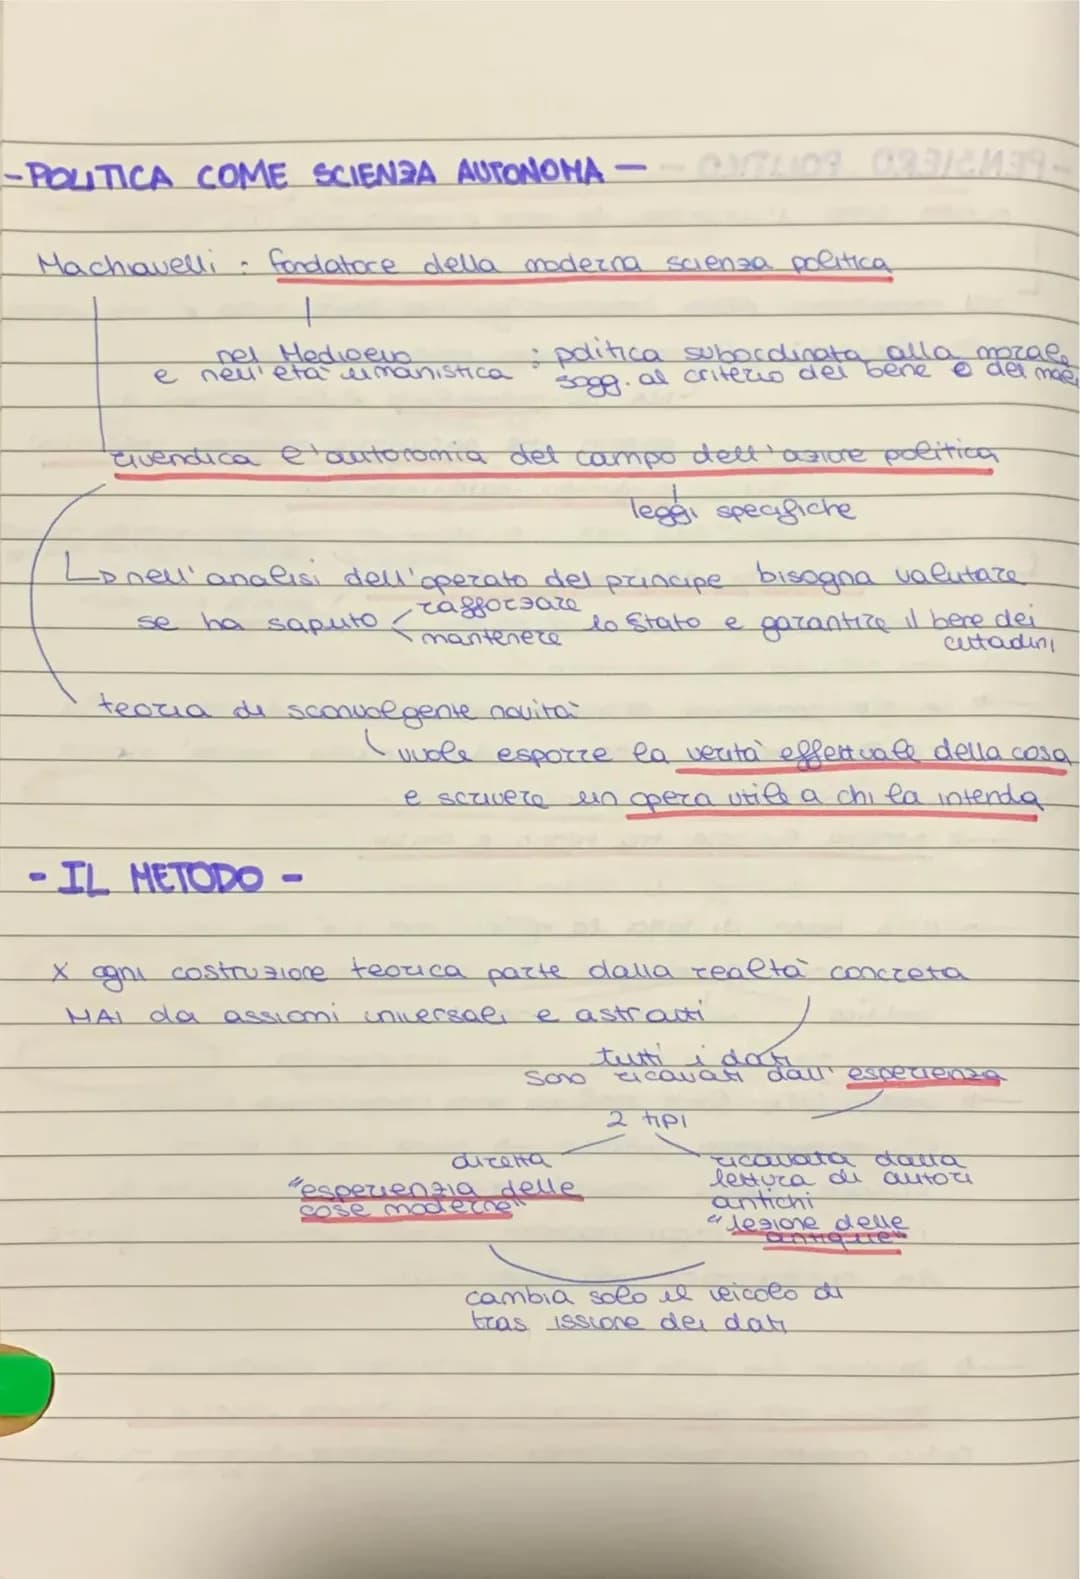 -POLITICA COME SCIENZA AUTONOMA -
Machiavelli : fondatore della moderna scienza politica
nel Medioevo : politica subordinata alla morale
e nell'età umanistica sogg. al criterio del bene e del male
rivendica l'autonomia del campo dell'azione politica
leggi specifiche
nell'analisi dell'operato del principe bisogna valutare
se ha saputo rafforzare lo Stato e garantire il bene dei
mantenere cittadini
teoria di sconvolgente novità
vuole esporre la verità effettuale della cosa
e scrivere un opera utile a chi la intenda
- IL METODO -
X ogni costruzione teorica parte dalla realtà concreta
MAI da assiomi universali e astratti
tutti i dati
sono ricavati dall'esperienza
2 tipi
diretta
"esperienzia delle
cose moderne"
ricavata dalla
lettura di autori
antichi
"lezione delle
antique"
cambia solo il veicolo di
tras issione dei dati